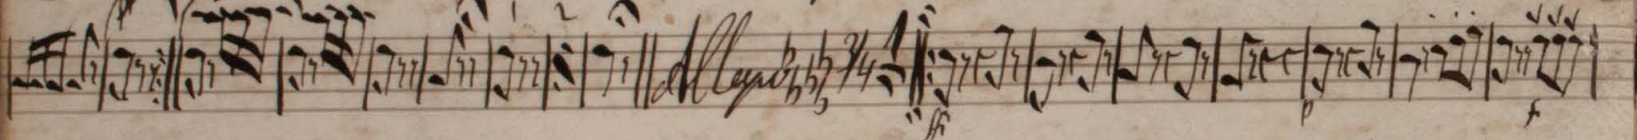 Allegro 3/4
ff p f